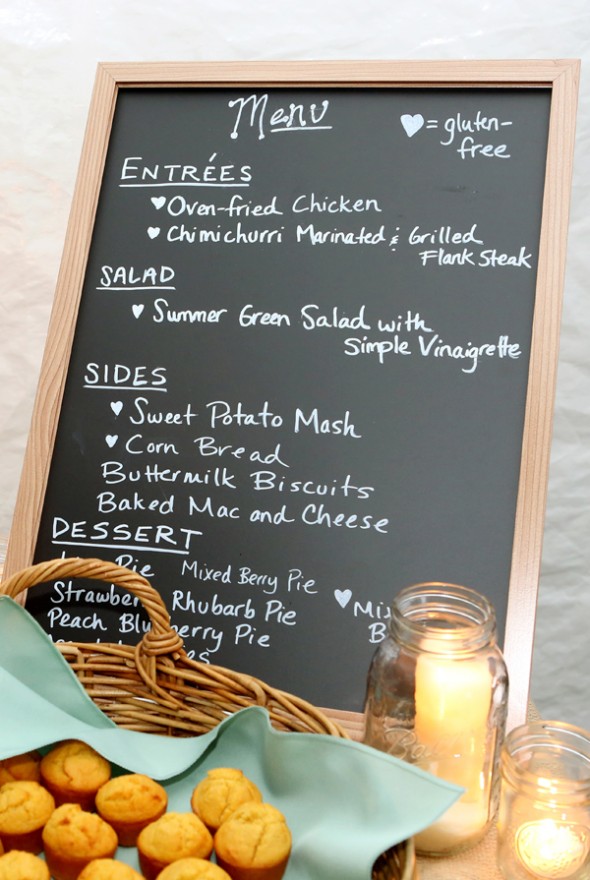 Menu
♥ = gluten-
free
ENTRÉES
♥ Oven-fried Chicken
♥ Chimichurri Marinated & Grilled
Flank Steak
SALAD
♥ Summer Green Salad with
Simple Vinaigrette
SIDES
♥ Sweet Potato Mash
♥ Corn Bread
Buttermilk Biscuits
Baked Mac and Cheese
DESSERT
Pie Mixed Berry Pie
Rhubarb Pie
Peach Pie